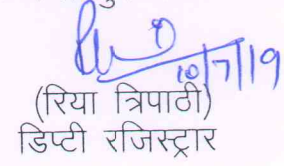 10/7/19
(रिया त्रिपाठी)
डिप्टी रजिस्ट्रार